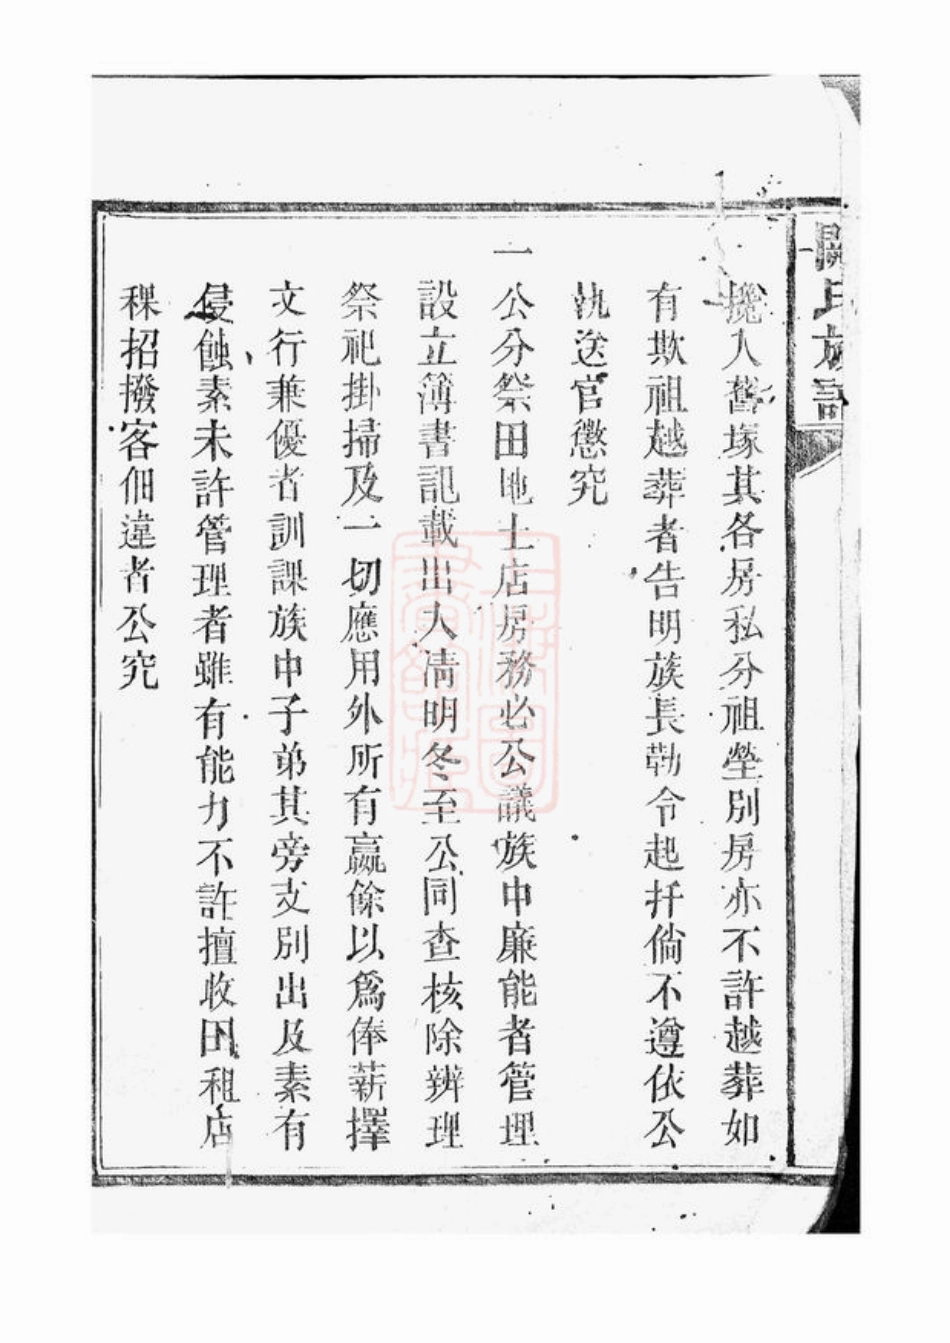 攙人舊塚其各房私分祖塋別房亦不許越葬如
有欺祖越葬者告明族長勒令起扦倘不遵依公
執送官懲究
一公分祭田地土店房務必公議族中廉能者管理
設立簿書記載出入清明冬至公同查核除辨理
祭祀掛掃及一切應用外所有贏餘以為俸薪擇
文行兼優者訓課族中子弟其旁支別出及素有
侵蝕素未許管理者雖有能力不許擅收田租店
稞招撥客佃違者公究